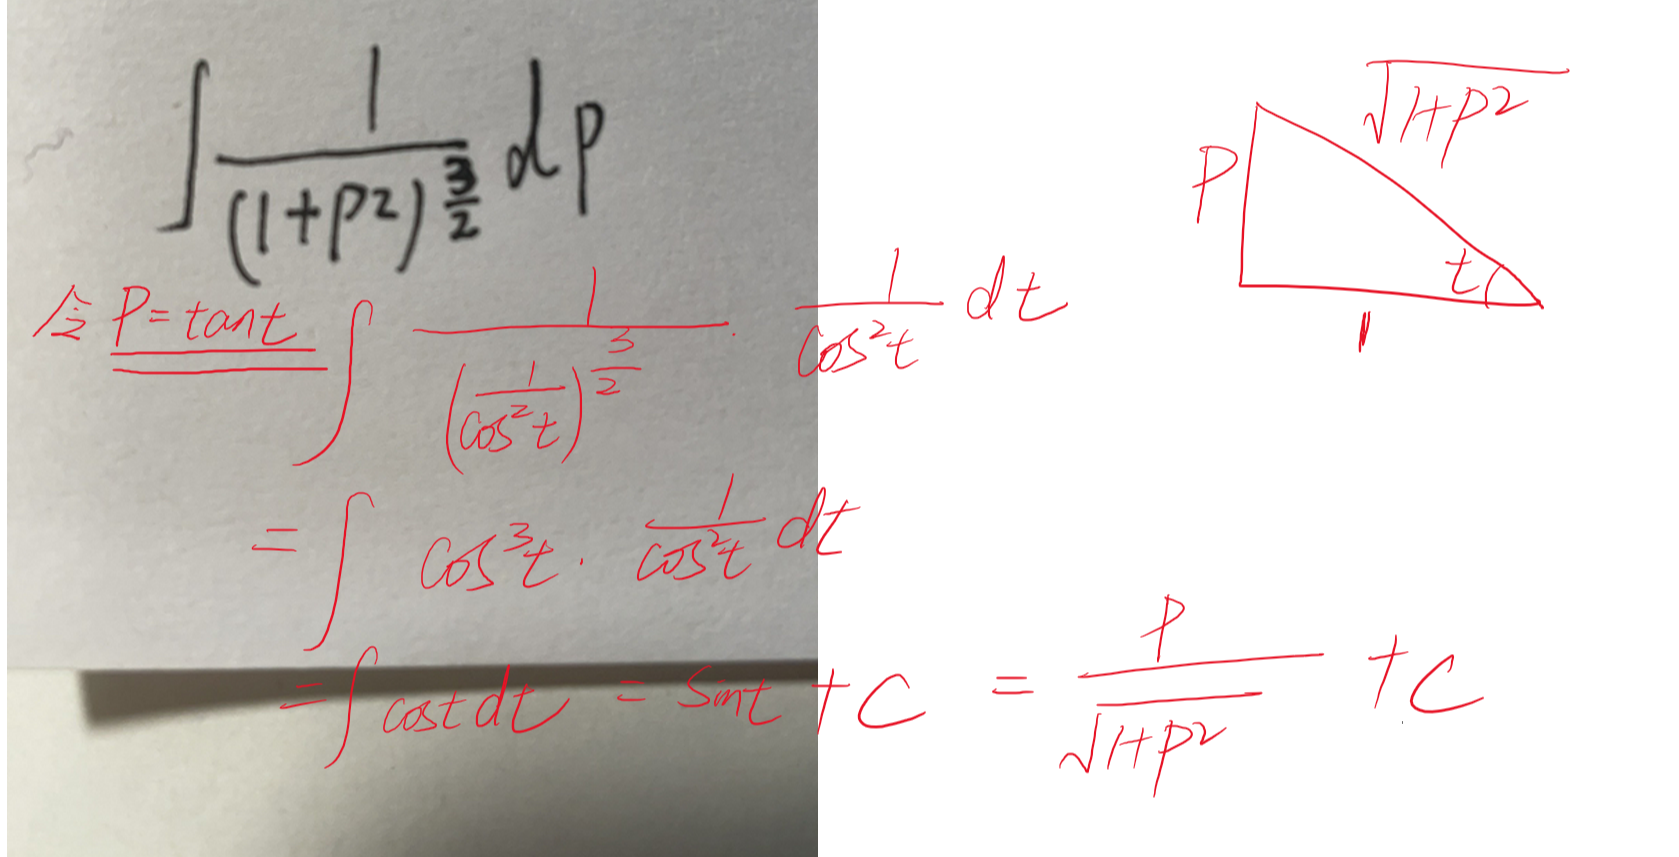 ∫ 1/(1+p²)^(3/2) dp
令 P=tant ∫ 1/(1/cos²t)^(3/2) · 1/cos²t dt
= ∫ cos³t · 1/cos²t dt
= ∫ cost dt = sint + C = P/√(1+P²) + C
√(1+P²)
P
t
1